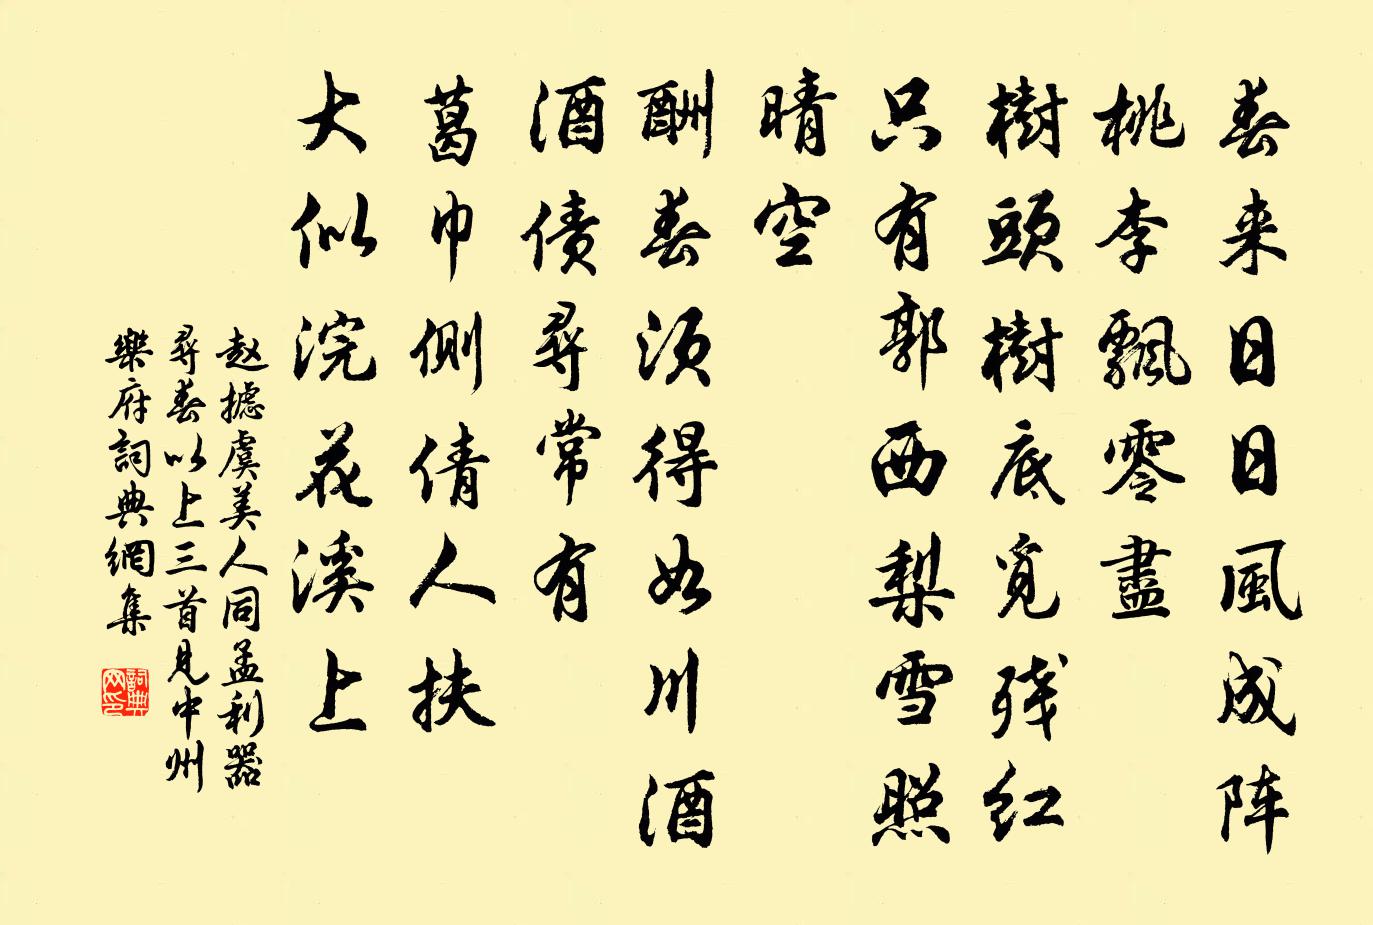 春来日日風成阵
桃李飄零盡
樹頭樹底覓残红
只有郭西梨雪照
晴空
酬春须得如川酒
酒债尋常有
葛巾側倩人扶
大似浣花溪上
赵摅虞美人同孟利器
尋春以上三首見中州
樂府詞典網集
詞典
网印